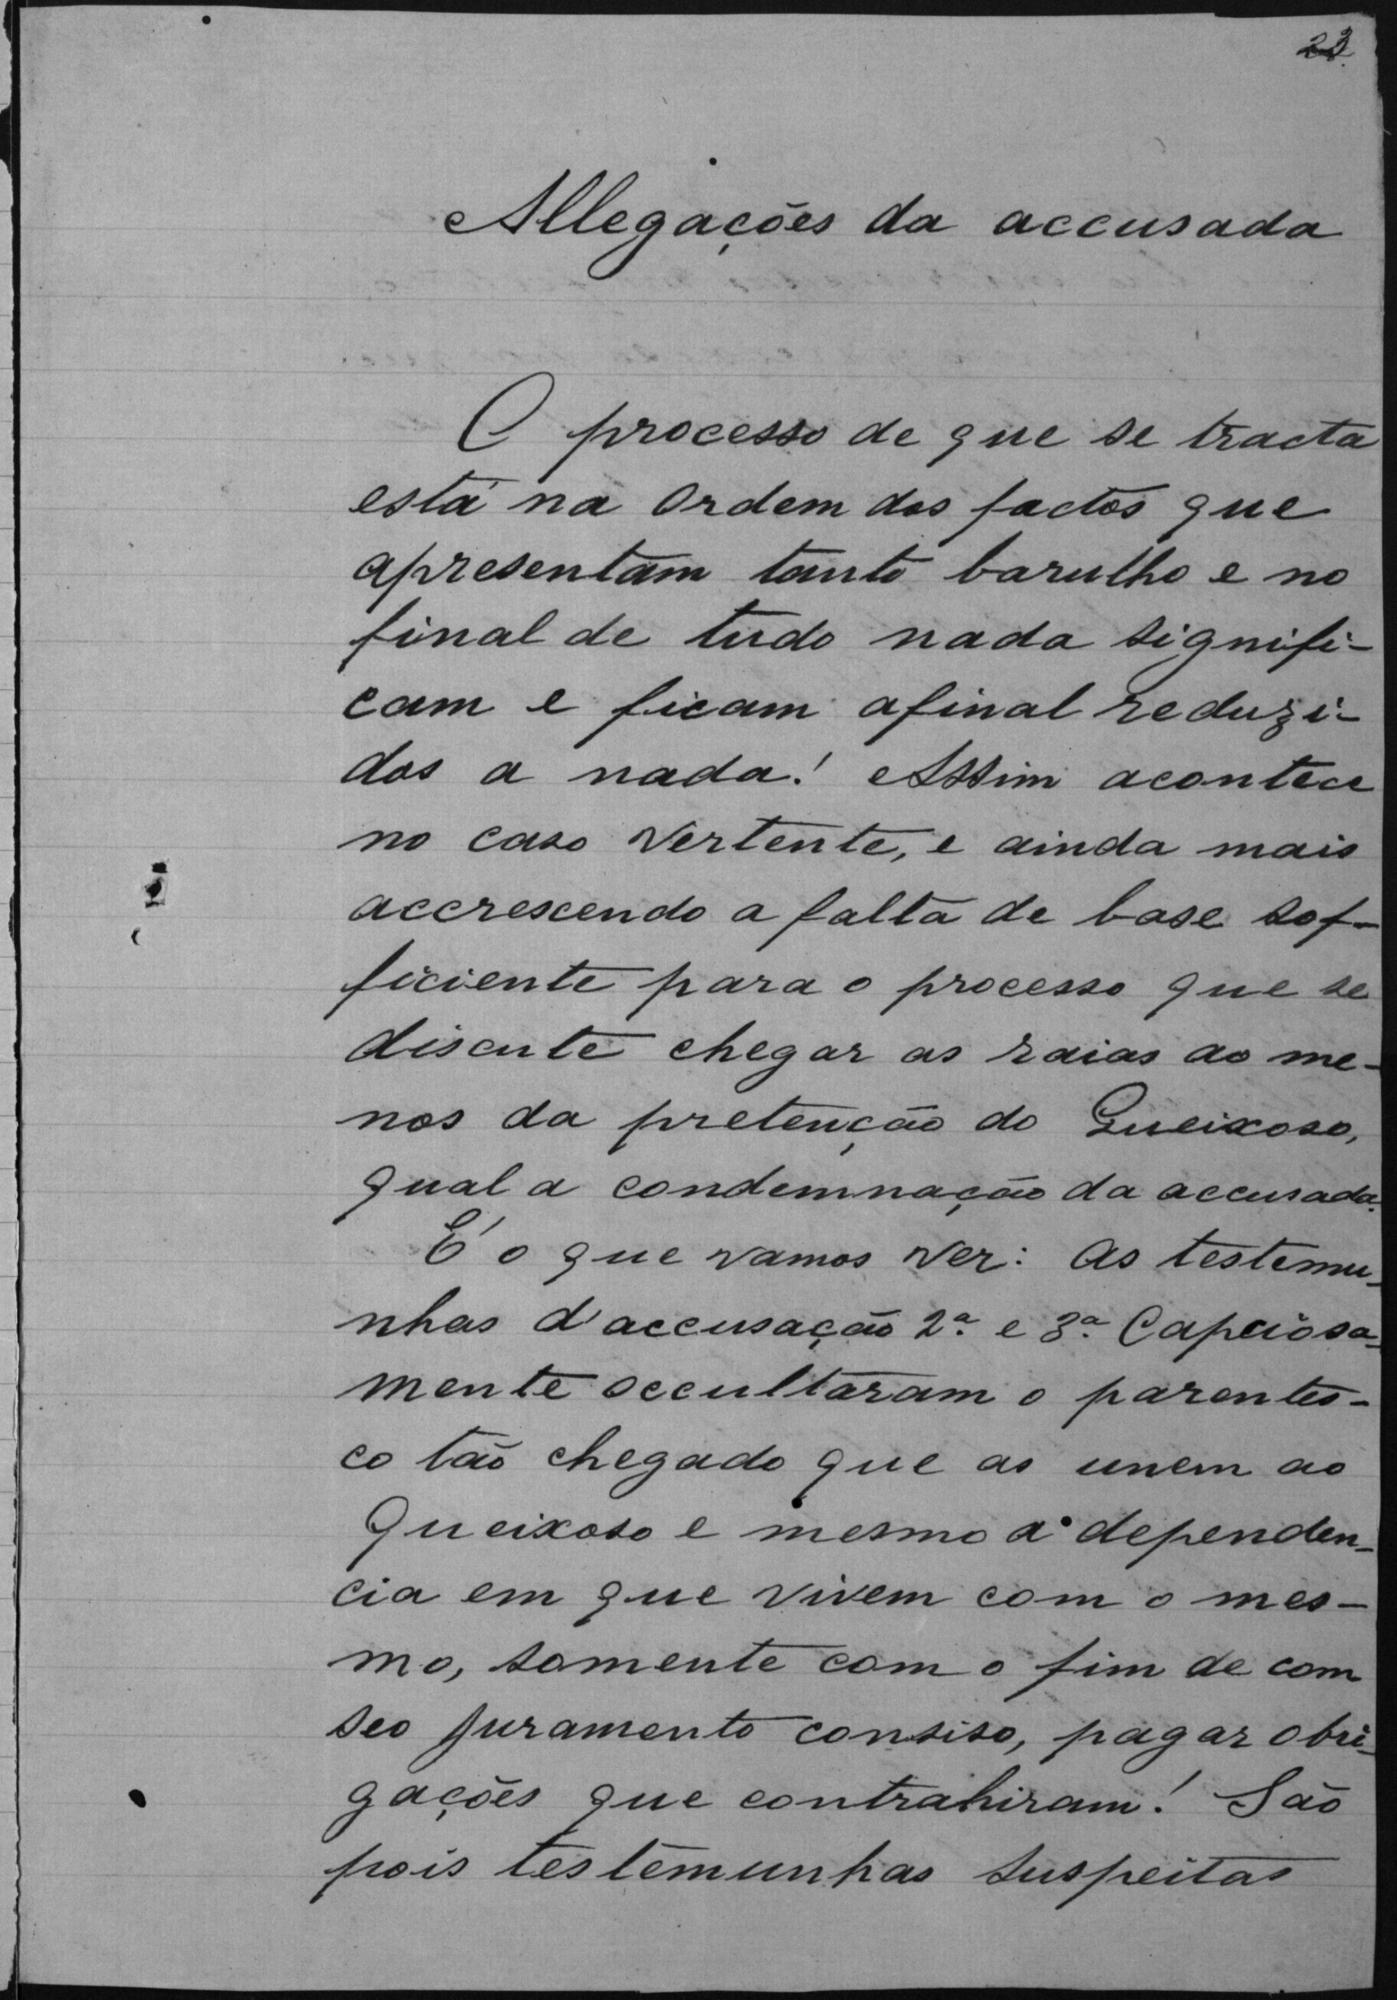 23.
Allegações da accusada
O processo de que se tracta
está na ordem dos factos que
apresentam tanto barulho e no
final de tudo nada signifi-
cam e ficam afinal reduzi-
dos a nada! Assim acontece
no caso vertente, e ainda mais
accrescendo a falta de base sof-
ficiente para o processo que se
discute chegar as raias ao me-
nos da pretenção do Queixoso,
qual a condemnação da accusada.
É o que vamos ver: As testemu-
nhas d'accusação 2ª e 3ª Capciosa-
mente occultaram o parentes-
co tão chegado que as unem ao
Queixoso e mesmo a dependen-
cia em que vivem com o mes-
mo, somente com o fim de com
seo juramento consiso, pagar obri-
gações que contrahiram! São
pois testemunhas suspeitas